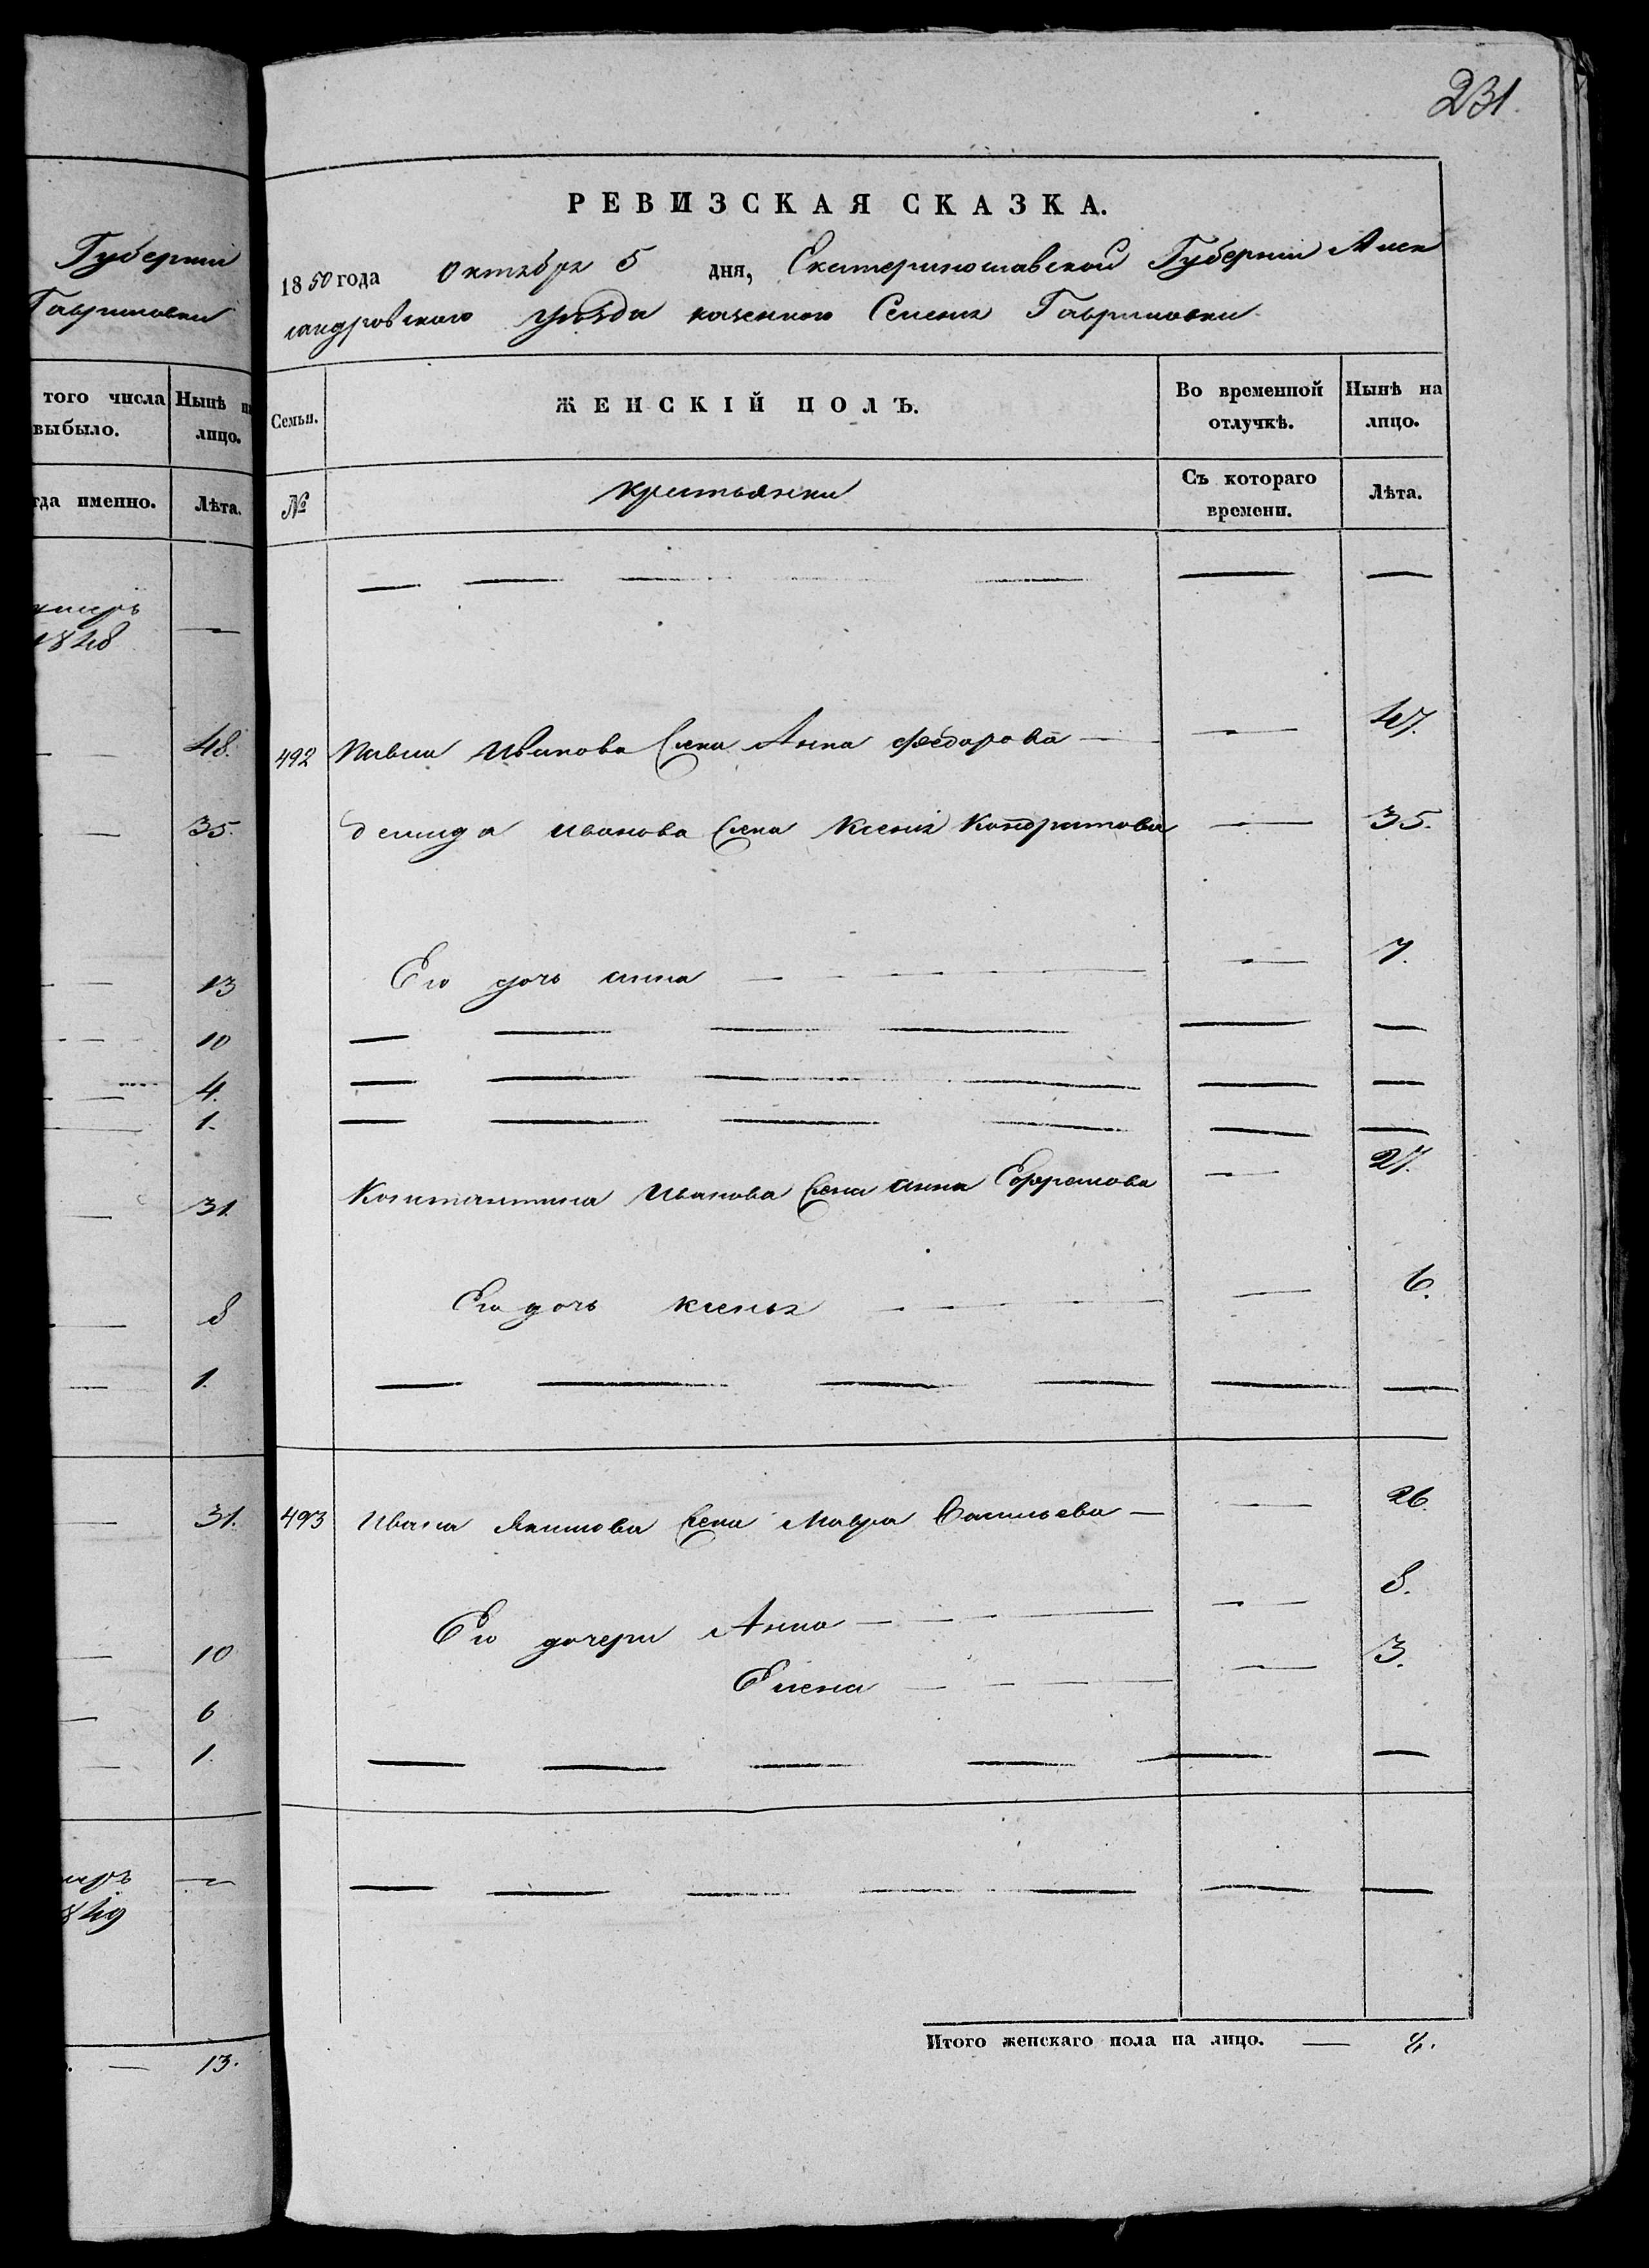 231.
Губерніи
Гавриловки
того числа выбыло.
Нынѣ на лицо.
гда именно.
Лѣта.
умеръ
1848
—
48.
35.
13
10
4.
1.
31.
8
1.
31.
10
6
1.
меръ
849
—
— 13.
РЕВИЗСКАЯ СКАЗКА.
1850 года Октября 5 дня, Екатеринославской Губерніи Алек
сандровского уѣзда казенного Селенія Гавриловки
Семьи.
ЖЕНСКІЙ ПОЛЪ.
Во временной отлучкѣ.
Нынѣ на лицо.
№
крестьянки
Съ котораго времени.
Лѣта.
— — — — — — —
492 Павла Иванова жена Анна Федорова — — 47.
Демида Иванова жена Ксенія Кондратова — 35.
Его дочь Анна — — — — — 7.
— — — — — —
— — — — — —
— — — — — —
Константина Иванова жена Анна Ефремова — 27.
Его дочь Ксенья — — — — 6.
— — — — — —
493 Ивана Якимова жена Мавра Васильева — — 26
Его дочери Анна — — — — — 8.
Елена — — — — 3.
— — — — — —
— — — — — — —
Итого женскаго пола на лицо. — 8.